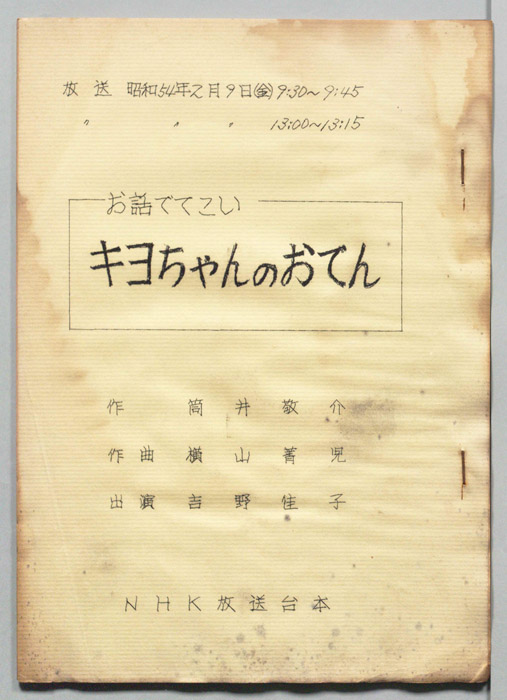 放送 昭和54年2月9日㈮ 9:30〜9:45
〃 〃 〃 13:00〜13:15
お話でてこい
キヨちゃんのおてん
作 筒井敬介
作曲 横山菁児
出演 吉野佳子
NHK放送台本